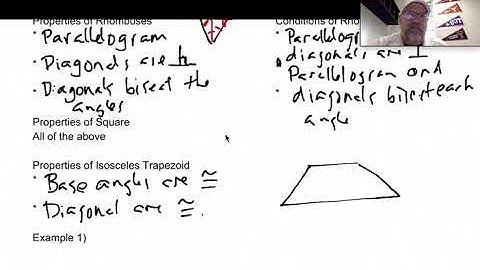 Properties of Rhombuses
• Parallelogram
• Diagonals are ⊥
• Diagonals bisect the
angles
Properties of Square
All of the above
Properties of Isosceles Trapezoid
• Base angles are ≅
• Diagonal are ≅.
Example 1)
Conditions of Rho
• Parallelogram
diagonals are ⊥
• Parallelogram and
diagonals bisect each
angle